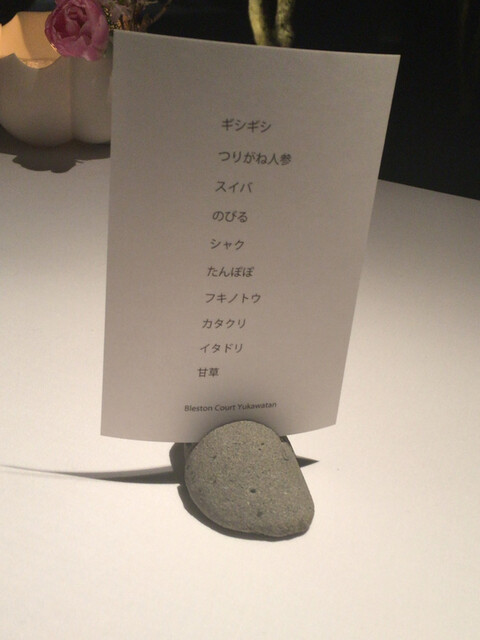 ギシギシ
つりがね人参
スイバ
のびる
シャク
たんぽぽ
フキノトウ
カタクリ
イタドリ
甘草
Bleston Court Yukawatan